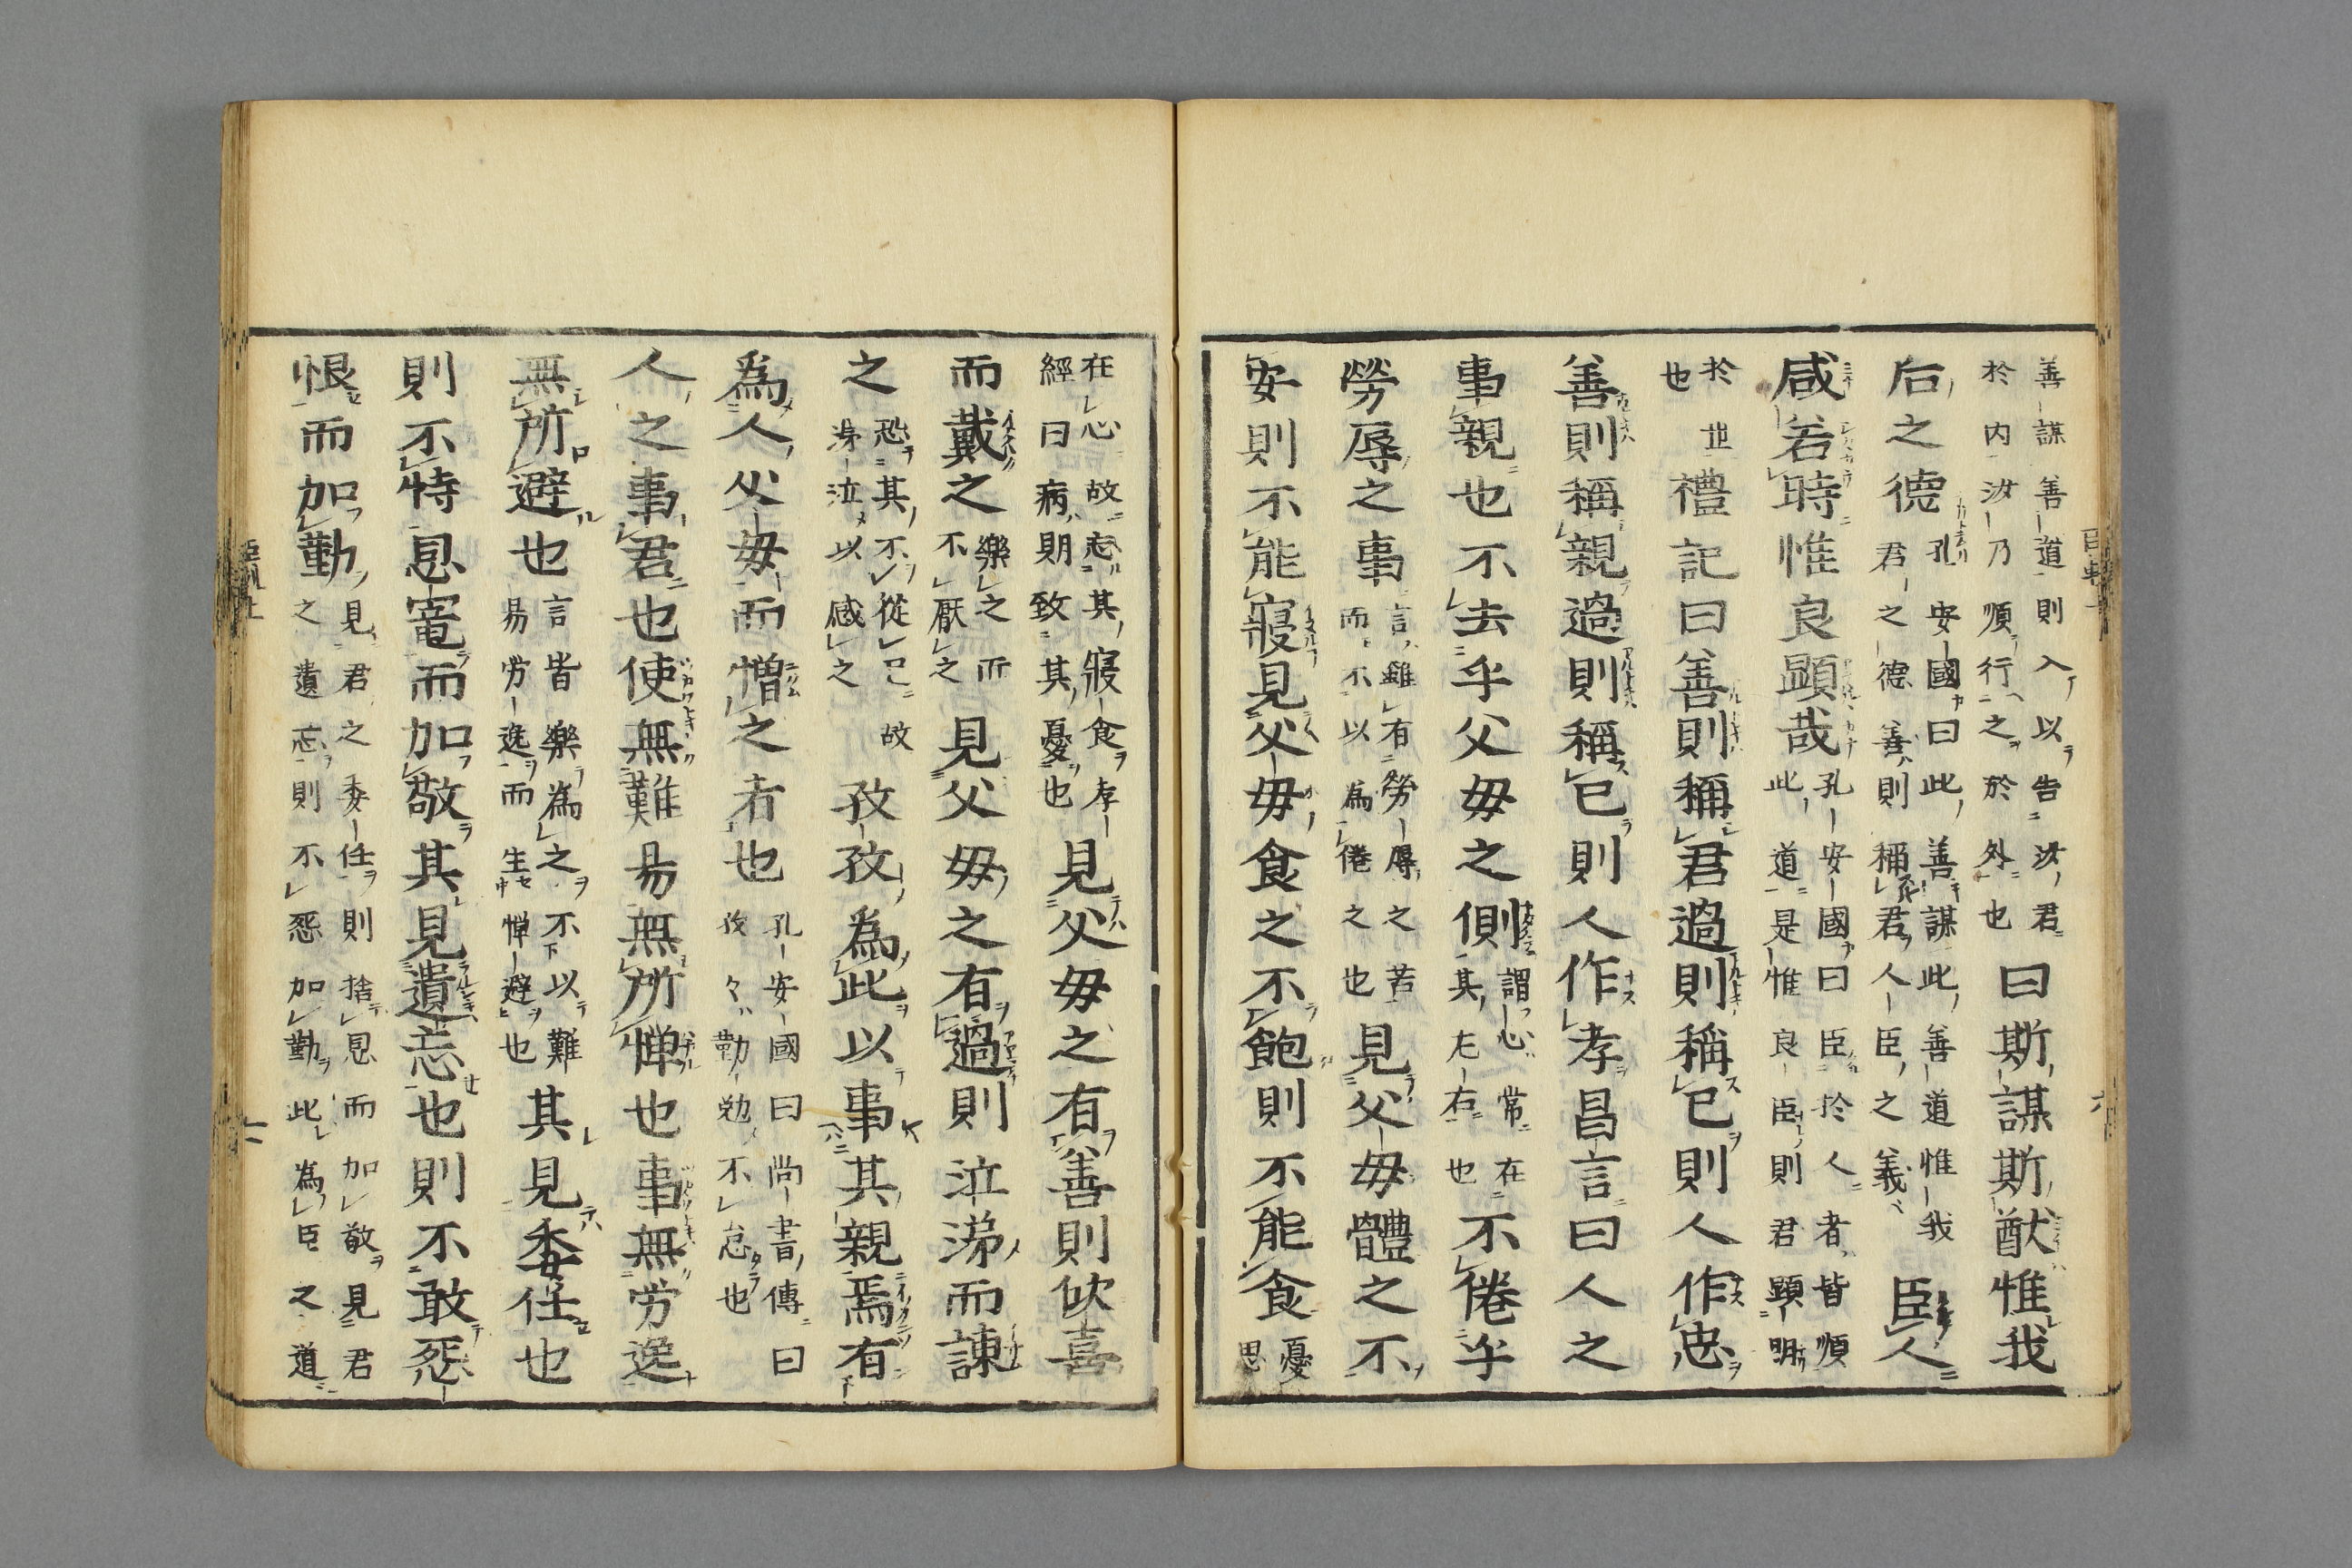 善謀善道則入以告汝君
於内汝乃順行之於外也
曰斯謀斯猷惟我
后之德
孔安國曰此善謀此善道惟我
君之德善則稱君人臣之義
臣人
咸若時惟良顕哉
孔安國曰臣於人者皆順
此道是惟良臣則君顕明
於世
也
禮記曰善則稱君過則稱已則人作忠
善則稱親過則稱已則人作孝昌言曰人之
事親也不去乎父毋之側
謂心常在
其左右也
不倦乎
勞辱之事
言雖有勞辱之苦
而不以為倦之也
見父毋體之不
安則不能寢見父毋食之不飽則不能食
憂
思
在心故忘其寢食孝
經曰病則致其憂也
見父毋之有善則欣喜
而戴之
樂之而
不厭之
見父毋之有過則泣涕而諫
之
恐其不從已故
涕泣以感之
孜孜為此以事其親焉有
為人父毋而憎之者也
孔安國曰尚書傳曰
孜々勤勉不怠也
人之事君也使無難易無所憚也事無労逸
無所避也
言皆樂為之不以難
易労逸而生憚避也
其見委任也
則不恃恩寵而加敬其見遺忘也則不敢怨
恨而加勤
見君之委任則捨恩而加敬見君
之遺忘則不怨加勤此為臣之道